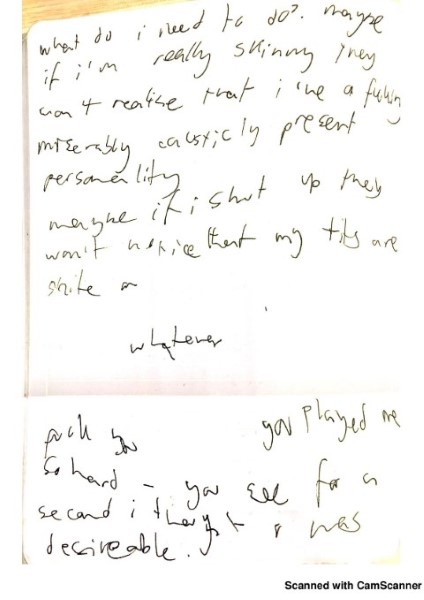 what do i need to do?. maybe
if i'm really skinny they
won't realise that i've a
miserably present
personality
maybe if i shut up they
won't notice that my tits are
shite or
whatever
fuck you you played me
so hard - you see for a
second i thought i was
desireable.
Scanned with CamScanner